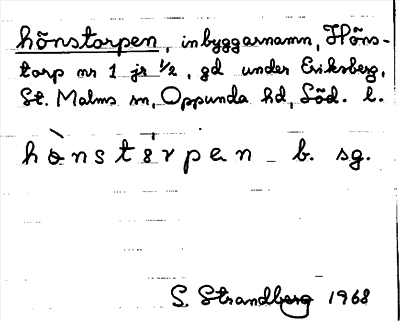 hönstorpen, inbyggarnamn, Höns-
torp nr 1 jr ½, gd under Eriksberg,
St. Malms sn, Oppunda hd, Söd. l.
hònstɞrpɞn b. sg.
S. Strandberg 1968